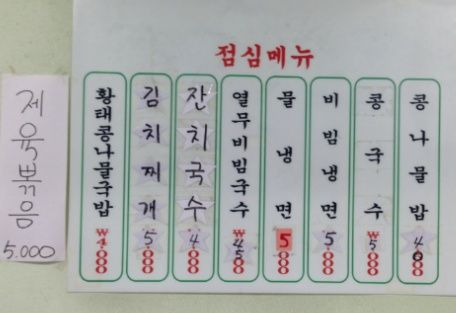 점심메뉴
제육뽂음
5.000
황태콩나물국밥
₩4000
김치찌개
5000
잔치국수
4000
열무비빔국수
₩4500
물냉면
5000
비빔냉면
5000
콩국수
₩5000
콩나물밥
4000